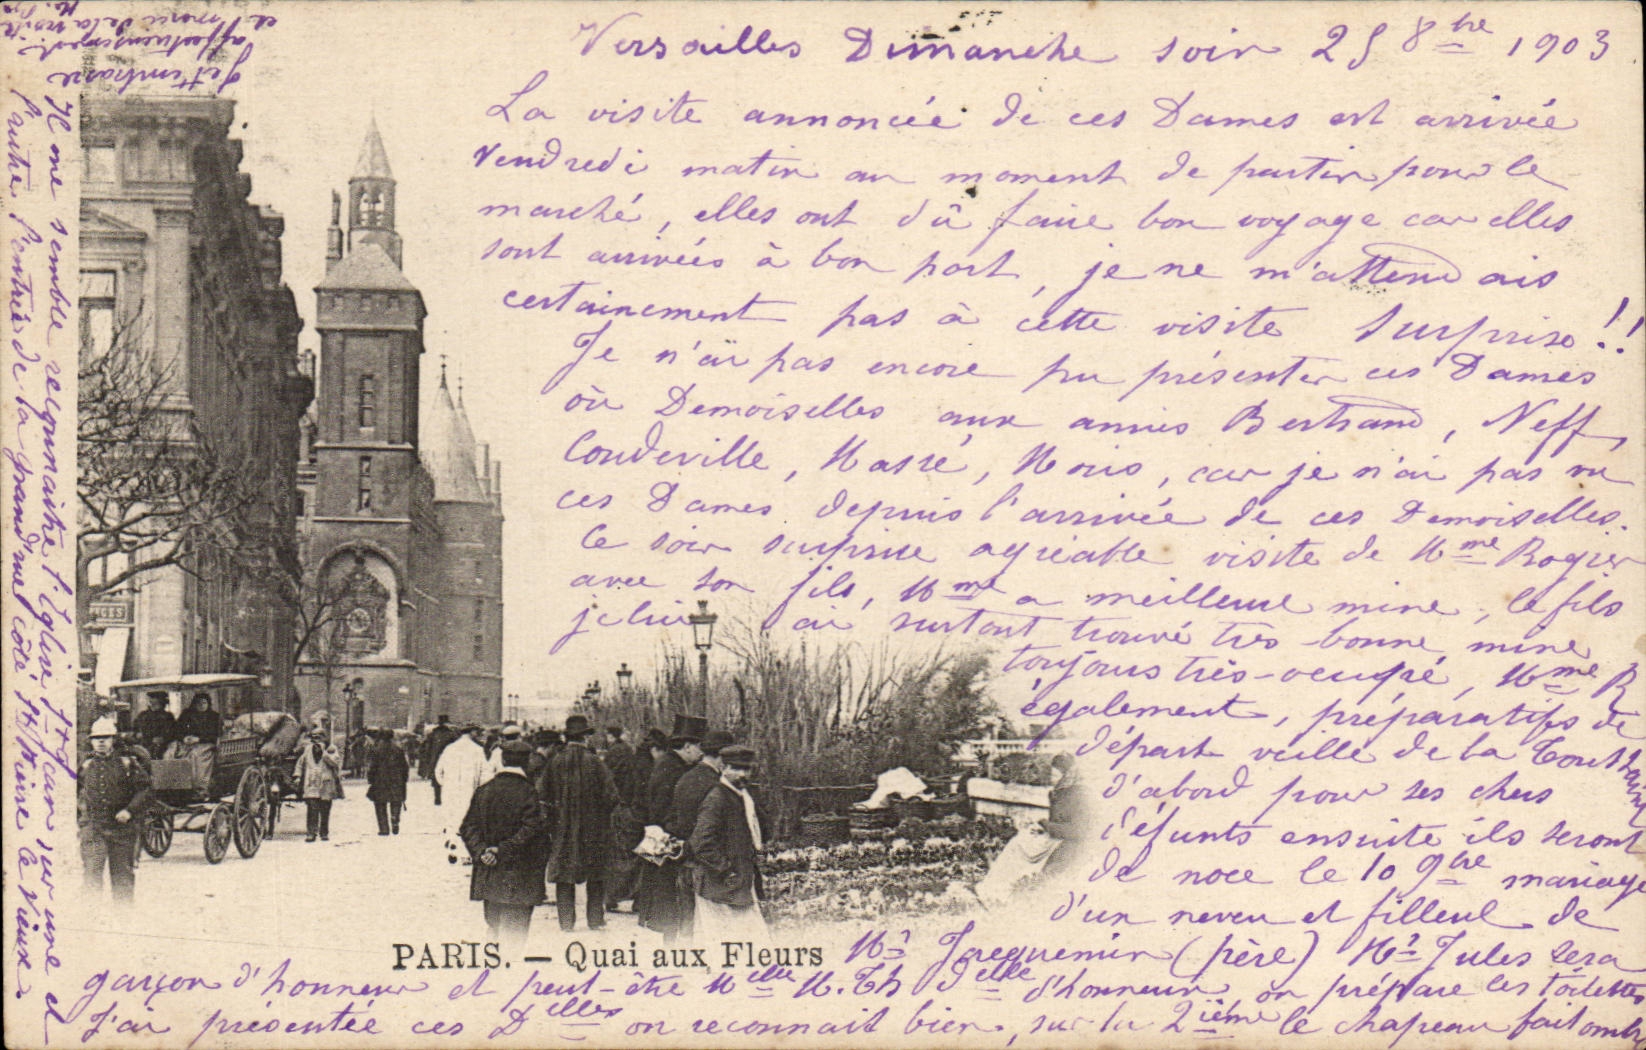 Versailles Dimanche soir 25 8bre 1903
La visite annoncée de ces Dames est arrivée
Vendredi matin au moment de partir pour le
marché, elles ont dû faire bon voyage car elles
sont arrivées à bon port, je ne m'attendais
certainement pas à cette visite surprise!!
Je n'ai pas encore pu présenter ces Dames
où Demoiselles aux amies Bertrand, Neff,
Coudeville, Massé, car je n'ai pas vu
ces Dames depuis l'arrivée de ces Demoiselles.
Ce soir surprise agréable visite de Mme Rogier
avec son fils, Mme a meilleure mine, le fils
je lui ai surtout trouvé très-bonne mine
toujours très-occupé, Mme R
également, préparatifs de
départ veille de la Toussaint
d'abord pour ses chers
défunts ensuite ils seront
de noce le 10 9bre mariage
d'un neveu et filleul de
PARIS. — Quai aux Fleurs
Mr Jacquemin (père) Mr Jules sera
garçon d'honneur et peut-être Mlle M. Th Delle d'honneur on prépare les toilettes
J'ai présentée ces Delles on reconnait bien, sur la 2ième le chapeau fait ombre
Il me semble reconnaitre l'Eglise St Jean sur une et
l'autre l'entrée de la grand'rue côté St Pierre le Vieux.
Je t'embrasse
affectueusement
et
NGES